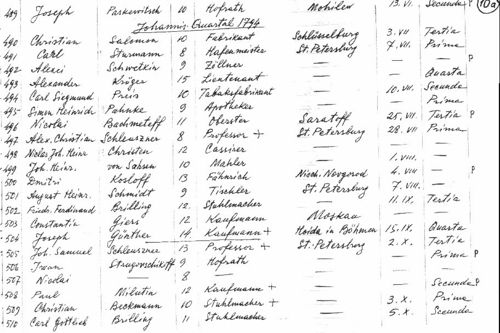 489 Joseph Parkewitsch 10 Hofrath Mohilew 13. VI. Secunda P
10a
Johannis-Quartal 1794
490 Christian Salomon 10 Fabrikant Schlüsselburg 3. VII Tertia
491 Carl Sturmann 8 Hafenmeister St. Petersburg 7. VII. Prima
492 Alexei Schwetkin 9 Zöllner — — P
493 Alexander Kröger 15 Lieutenant — — Quarta
494 Carl Siegmund Preis 10 Tabaksfabrikant — 10. VII. Secunda
495 Simon Heinrich Pohnke 9 Apotheker — — Prima
496 Nicolai Bachmetoff 11 Oberster Saratoff 25. VII. Tertia P
497 Alex. Christian Schleuszner 8 Professor + St. Petersburg 28. VII Prima
498 Nicles Joh. Heinr. Christen 12 Cassirer — —
499 Joh. Heinr. von Sahsen 10 Mahler — 1. VIII. —
500 Dmitri Kosloff 13 Fähnrich Nisch. Novgorod 4. VIII — P
501 August Heinr. Schmidt 9 Tischler St. Petersburg 7. VIII. —
502 Friedr. Ferdinand Brilling 12 Stuhlmacher — 11. IX. Tertia
503 Constantin Giers 12 Kaufmann Moskau — —
504 Joseph Günther 14 Kaufmann + Haida in Böhmen 15. IX. Quarta
505 Joh. Samuel Schleuszner 13 Professor + St. Petersburg 2. X. Tertia
506 Iwan Strugovschikoff 9 Hofrath — — Prima P
507 Nicolai — 8 — — — —
508 Paul Milutin 12 Kaufmann + — — Secunda P
509 Christian Beckmann 10 Stuhlmacher + — 3. X. Prima
510 Carl Gottlieb Brilling 11 Stuhlmacher — 5. X. Secunda